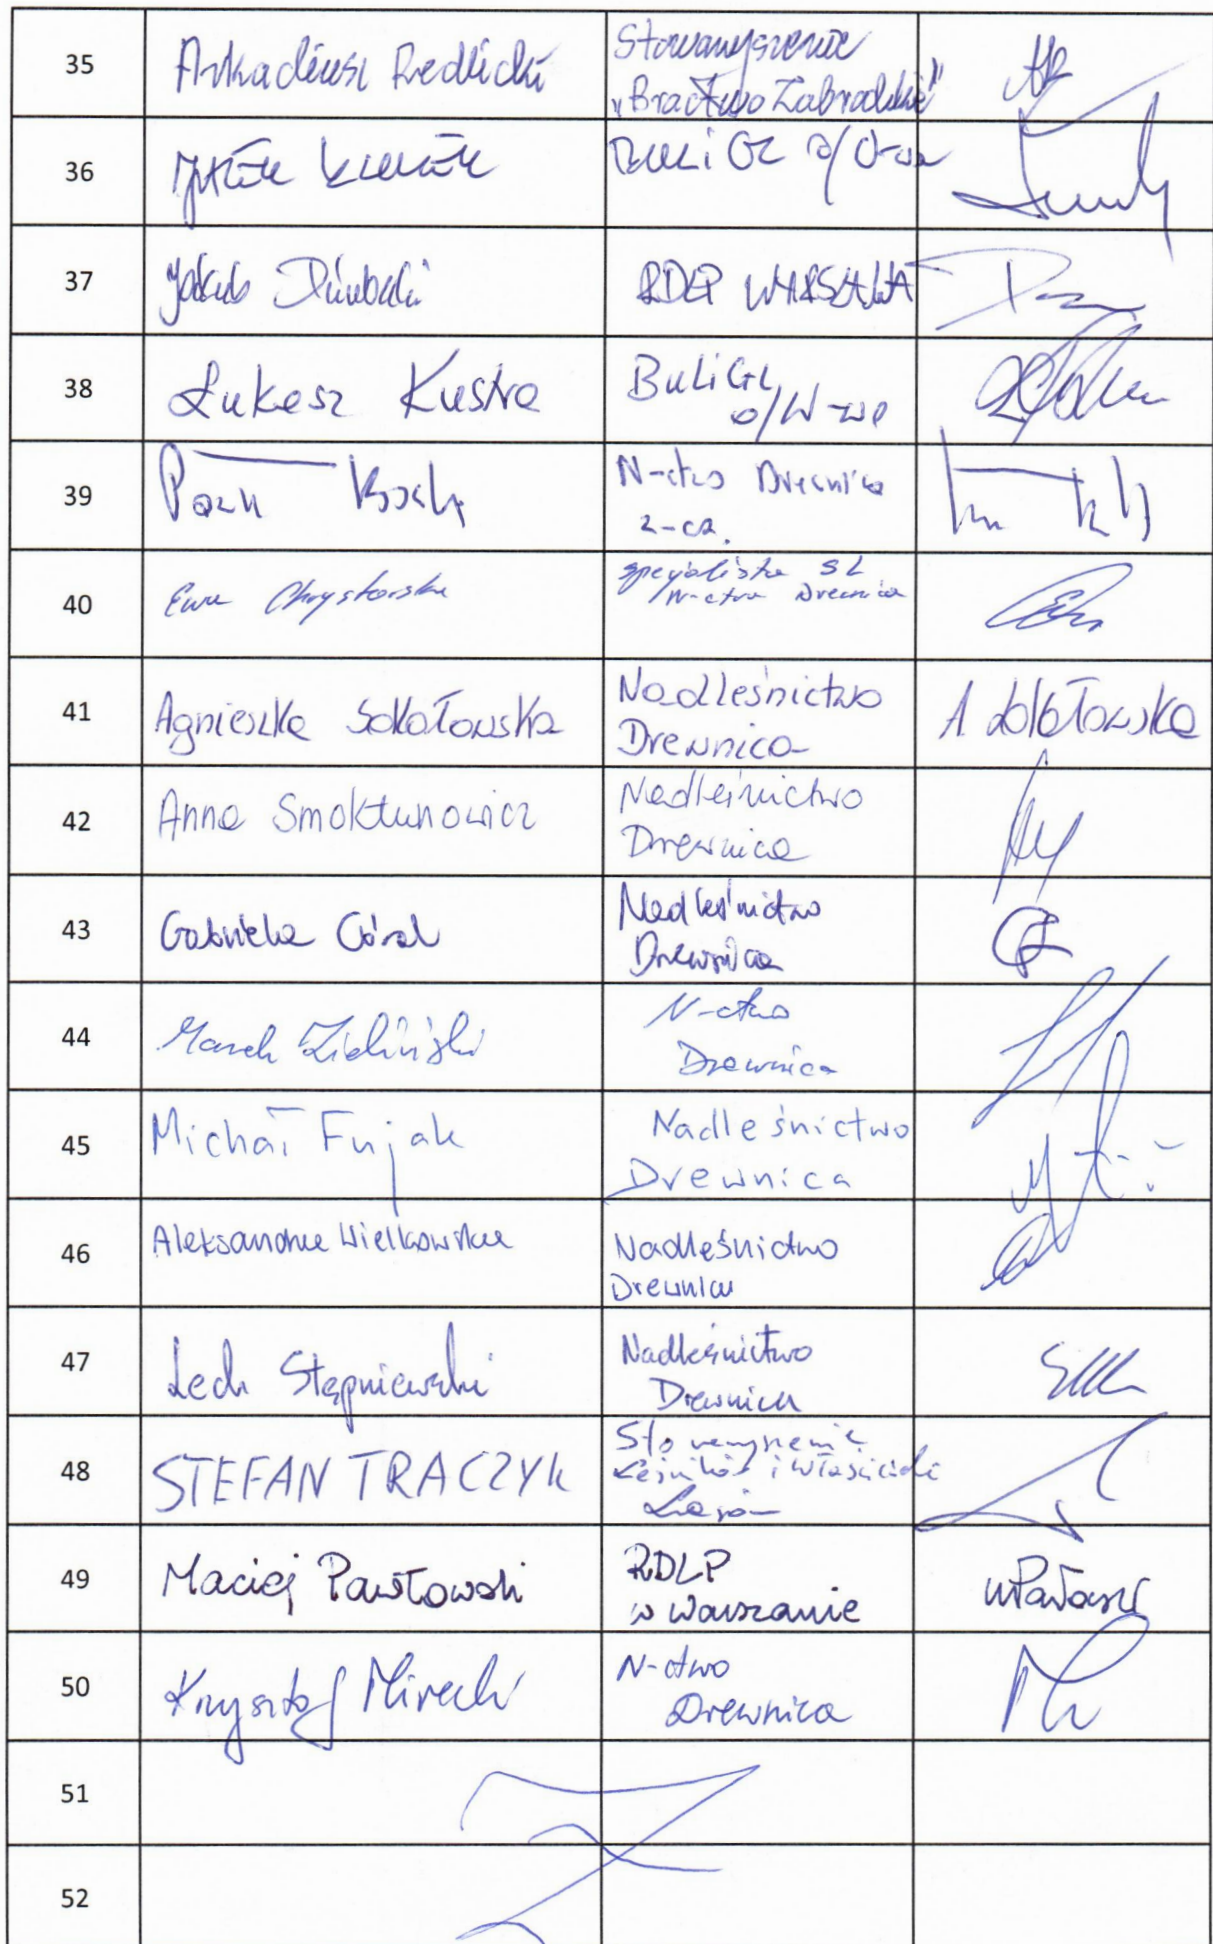 35 Arkadiusz Redlicki Stowarzyszenie
"Bractwo Zabrodzkie" AR
36 BULiGL o/
37 Jakub RDLP WARSZAWA
38 Łukasz Kustra BULiGL
o/W-wa
39 N-ctwo Drewnica
z-ca.
40 Ewa specjalista SL
N-ctwa Drewnica
41 Agnieszka Sokołowska Nadleśnictwo
Drewnica A Sokołowska
42 Anna Smoktunowicz Nadleśnictwo
Drewnica
43 Gabriela Góral Nadleśnictwo
Drewnica
44 Marek Zieliński N-ctwo
Drewnica
45 Michał Fujak Nadleśnictwo
Drewnica
46 Aleksandra Wielkowska Nadleśnictwo
Drewnica
47 Lech Stępniewski Nadleśnictwo
Drewnica
48 STEFAN TRACZYK Stowarzyszenie
Leśników i Właścicieli
Lasów
49 Maciej Pawłowski RDLP
w Warszawie
50 Krzysztof Mirecki N-ctwo
Drewnica
51
52